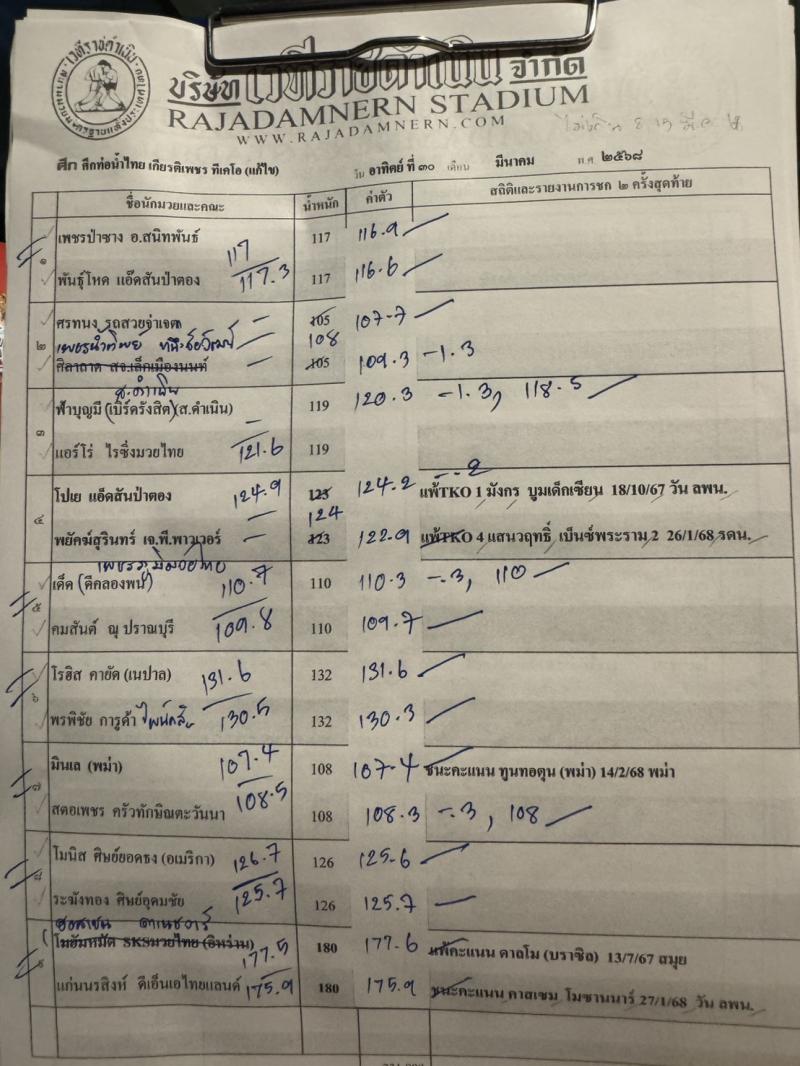 เวทีราชดำเนิน
บริษัท เวทีราชดำเนิน จำกัด
RAJADAMNERN STADIUM
WWW.RAJADAMNERN.COM
ศึก ศึกท่อน้ำไทย เกียรติเพชร ทีเคโอ (แก้ไข) วัน อาทิตย์ ที่ ๓๐ เดือน มีนาคม พ.ศ ๒๕๖๘
ชื่อนักมวยและคณะ น้ำหนัก ค่าตัว สถิติและรายงานการชก ๒ ครั้งสุดท้าย
๑ เพชรป่าซาง อ.สนิทพันธ์ 117 117 116.9
พันธุ์โหด แอ๊ดสันป่าตอง 117.3 117 116.6
๒ ศรทนง รถสวยจ่าเจต 105 107.7
เพชรน้ำทิพย์ 108
ศิลาถาด สจ.เล็กเมืองนนท์ 105 109.3 -1.3
ส.ดำเนิน
๓ ฟ้าบุญมี (เบิร์ดรังสิต) (ส.ดำเนิน) 119 120.3 -1.3, 118.5
แอร์โร่ ไรซิ่งมวยไทย 121.6 119
๔ โปเย แอ๊ดสันป่าตอง 124.9 123 124.2 -.2 แพ้TKO 1 มังกร บูมเด็กเซียน 18/10/67 วัน ลพน.
124
พยัคฆ์สุรินทร์ เจ.พี.พาวเวอร์ 123 122.9 แพ้TKO 4 แสนวฤทธิ์ เบ็นซ์พระราม 2 26/1/68 รดน.
เพชรภูมิมวยไทย
๕ เด็ด (ตี๋คลองพน) 110.7 110 110.3 -.3, 110
คมสันต์ ณ ปราณบุรี 109.8 110 109.7
๖ โรฮิส คายัด (เนปาล) 131.6 132 131.6
พรพิชัย การูด้า 130.5 132 130.3
๗ มินเล (พม่า) 107.4 108 107.4 ชนะคะแนน ทูนทอตุน (พม่า) 14/2/68 พม่า
สตอเพชร ครัวทักษิณตะวันนา 108.5 108 108.3 -.3, 108
๘ โมนิส ศิษย์ยอดธง (อเมริกา) 126.7 126 125.6
ระฆังทอง ศิษย์อุดมชัย 125.7 126 125.7
๙ โมฮัมหมัด SKSมวยไทย (อิหร่าน) 177.5 180 177.6 แพ้คะแนน คาลโม (บราซิล) 13/7/67 สมุย
แก่นนรสิงห์ ดีเอ็นเอไทยแลนด์ 175.9 180 175.9 ชนะคะแนน คาสเซม โมซานนาร์ 27/1/68 วัน ลพน.